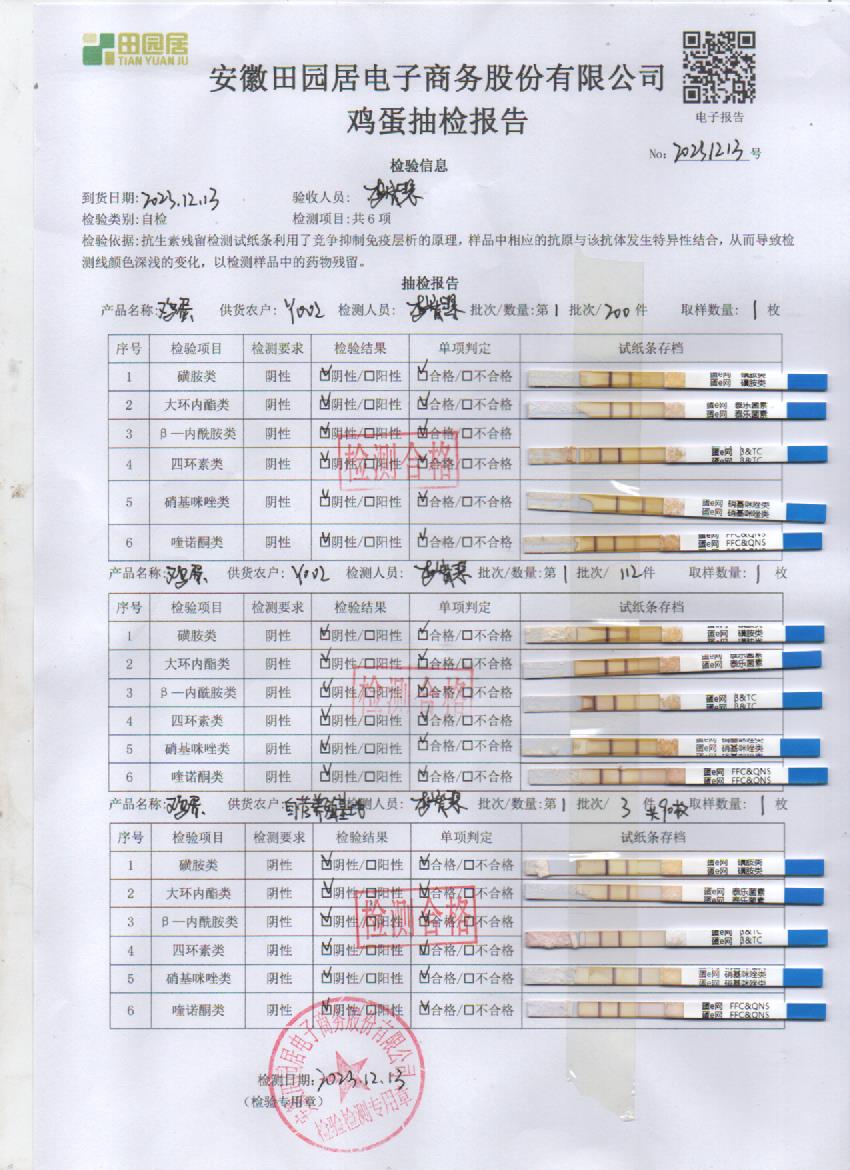 田园居
TIAN YUAN JU
安徽田园居电子商务股份有限公司
鸡蛋抽检报告
电子报告
No: 20231213 号
检验信息
到货日期: 2023.12.13 验收人员:
检验类别: 自检 检测项目: 共6项
检验依据: 抗生素残留检测试纸条利用了竞争抑制免疫层析的原理，样品中相应的抗原与该抗体发生特异性结合，从而导致检
测线颜色深浅的变化，以检测样品中的药物残留。
抽检报告
产品名称: 鸡蛋 供货农户: Y002 检测人员: 批次/数量: 第1批次/200件 取样数量: 1枚
序号 检验项目 检测要求 检验结果 单项判定 试纸条存档
1 磺胺类 阴性 ☑阴性/□阳性 ☑合格/□不合格 蛋e网 磺胺类
2 大环内酯类 阴性 ☑阴性/□阳性 ☑合格/□不合格 蛋e网 泰乐菌素
3 β—内酰胺类 阴性 ☑阴性/□阳性 ☑合格/□不合格
4 四环素类 阴性 ☑阴性/□阳性 ☑合格/□不合格 蛋e网 β&TC
检测合格
5 硝基咪唑类 阴性 ☑阴性/□阳性 ☑合格/□不合格 蛋e网 硝基咪唑类
6 喹诺酮类 阴性 ☑阴性/□阳性 ☑合格/□不合格 蛋e网 FFC&QNS
产品名称: 鸡蛋 供货农户: Y002 检测人员: 批次/数量: 第1批次/112件 取样数量: 1枚
序号 检验项目 检测要求 检验结果 单项判定 试纸条存档
1 磺胺类 阴性 ☑阴性/□阳性 ☑合格/□不合格 蛋e网 磺胺类
2 大环内酯类 阴性 ☑阴性/□阳性 ☑合格/□不合格 蛋e网 泰乐菌素
3 β—内酰胺类 阴性 ☑阴性/□阳性 ☑合格/□不合格 蛋e网 β&TC
检测合格
4 四环素类 阴性 ☑阴性/□阳性 ☑合格/□不合格
5 硝基咪唑类 阴性 ☑阴性/□阳性 ☑合格/□不合格 蛋e网 硝基咪唑类
6 喹诺酮类 阴性 ☑阴性/□阳性 ☑合格/□不合格 蛋e网 FFC&QNS
产品名称: 鸡蛋 供货农户: 检测人员: 批次/数量: 第1批次/3件 共90枚 取样数量: 1枚
序号 检验项目 检测要求 检验结果 单项判定 试纸条存档
1 磺胺类 阴性 ☑阴性/□阳性 ☑合格/□不合格 蛋e网 磺胺类
2 大环内酯类 阴性 ☑阴性/□阳性 ☑合格/□不合格 蛋e网 泰乐菌素
3 β—内酰胺类 阴性 ☑阴性/□阳性 ☑合格/□不合格
检测合格
4 四环素类 阴性 ☑阴性/□阳性 ☑合格/□不合格 蛋e网 β&TC
5 硝基咪唑类 阴性 ☑阴性/□阳性 ☑合格/□不合格 蛋e网 硝基咪唑类
6 喹诺酮类 阴性 ☑阴性/□阳性 ☑合格/□不合格 蛋e网 FFC&QNS
安徽田园居电子商务股份有限公司
检测日期: 2023.12.13
（检验专用章）
检验检测专用章